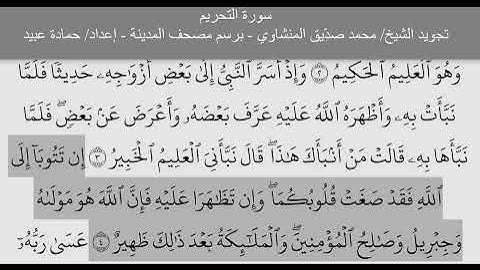 سورة التحريم
تجويد الشيخ/ محمد صدّيق المنشاوي - برسم مصحف المدينة - إعداد/ حمادة عبيد
وَهُوَ ٱلْعَلِيمُ ٱلْحَكِيمُ ٢ وَإِذْ أَسَرَّ ٱلنَّبِىُّ إِلَىٰ بَعْضِ أَزْوَٰجِهِۦ حَدِيثًا فَلَمَّا
نَبَّأَتْ بِهِۦ وَأَظْهَرَهُ ٱللَّهُ عَلَيْهِ عَرَّفَ بَعْضَهُۥ وَأَعْرَضَ عَنۢ بَعْضٍۖ فَلَمَّا
نَبَّأَهَا بِهِۦ قَالَتْ مَنْ أَنۢبَأَكَ هَٰذَاۖ قَالَ نَبَّأَنِىَ ٱلْعَلِيمُ ٱلْخَبِيرُ ٣ إِن تَتُوبَآ إِلَى
ٱللَّهِ فَقَدْ صَغَتْ قُلُوبُكُمَاۖ وَإِن تَظَٰهَرَا عَلَيْهِ فَإِنَّ ٱللَّهَ هُوَ مَوْلَىٰهُ
وَجِبْرِيلُ وَصَٰلِحُ ٱلْمُؤْمِنِينَۖ وَٱلْمَلَٰٓئِكَةُ بَعْدَ ذَٰلِكَ ظَهِيرٌ ٤ عَسَىٰ رَبُّهُۥٓ